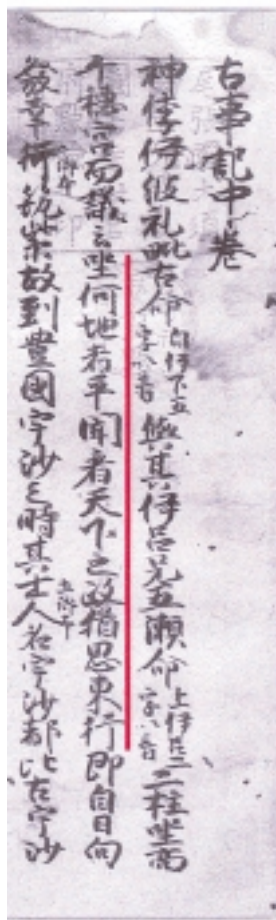 古事記中卷
神倭伊波礼毗古命自伊下五字以音與其伊呂兄五瀬命上伊呂二字以音二柱坐而
千穗宮而議云坐何地者平聞看天下之政猶思東行即自日向
發幸御筑紫故到豊國宇沙之時其土人名宇沙都比古宇沙